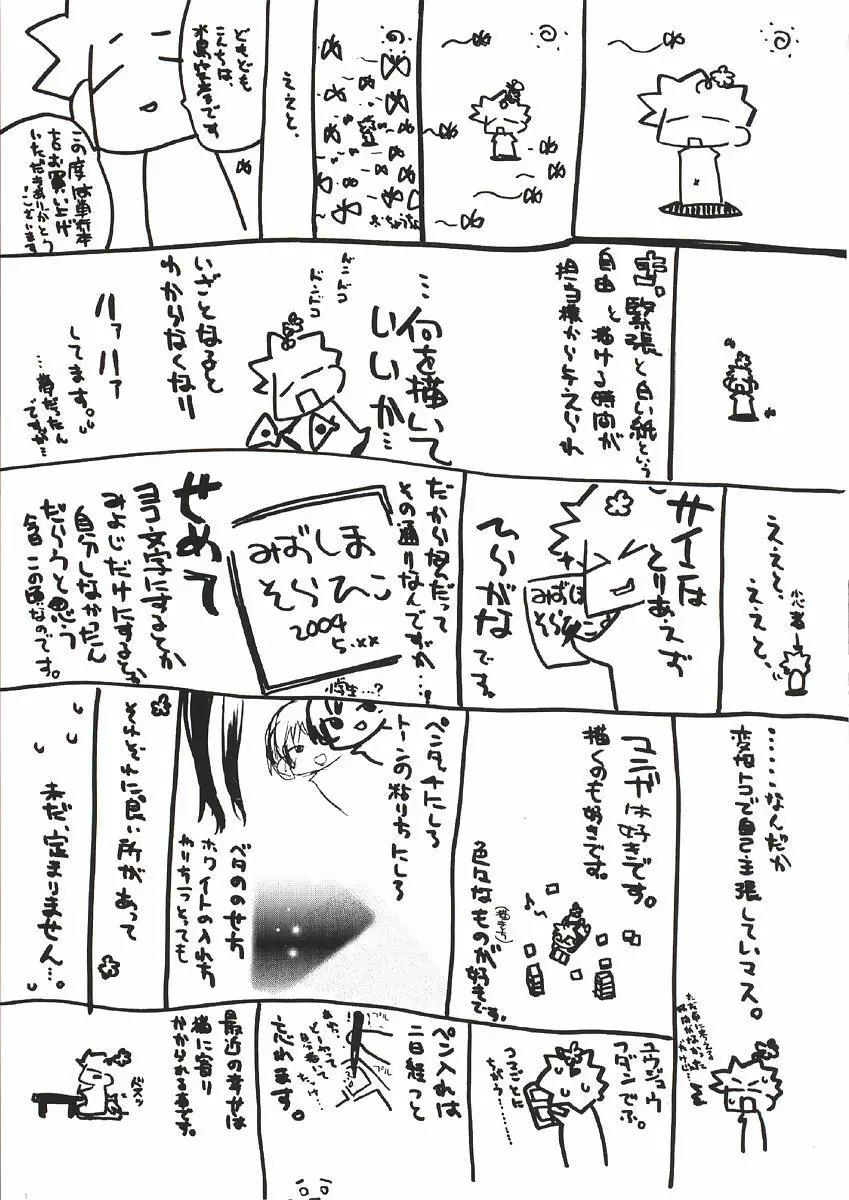 ええと、
どもども
こんちは、
水島空彦です。
この度は単行本
をお買い上げ
いただきありがとう
ございます
緊張と白い紙という
自由と描ける時間が
担当様から与えられ
…何を描いて
いいか…
ドンドコ
ドンドコ
いざとなると
わからなくなり
ハァハァ
してます。
ですが…
ええと、
ええと、
小心者→
サインは
とりあえず
ひらがな
です。
みずしま
そらひこ
だから何だって
その通りなんですが…。
みずしま
そらひこ
2004
5.××
せめて
ヨコ文字にするとか
みよじだけにするとか
自分しなかったん
だろうと思う
今日この頃なのです。
……なんだか
変なトコで自己主張していマス。
マンガは好きです。
描くのも好きです。
色々なものが好きです。
ペンタッチにしろ
トーンの貼り方にしろ
小学生…?
ベタののせ方
ホワイトの入れ方
それぞれに良い所があって
未だ、定まりません…。
ユウジュウ
フダンでぶ。
ペン入れは
二日経つと
忘れます。
プル
プル
最近の幸せは
猫に寄り
かかられる事です。